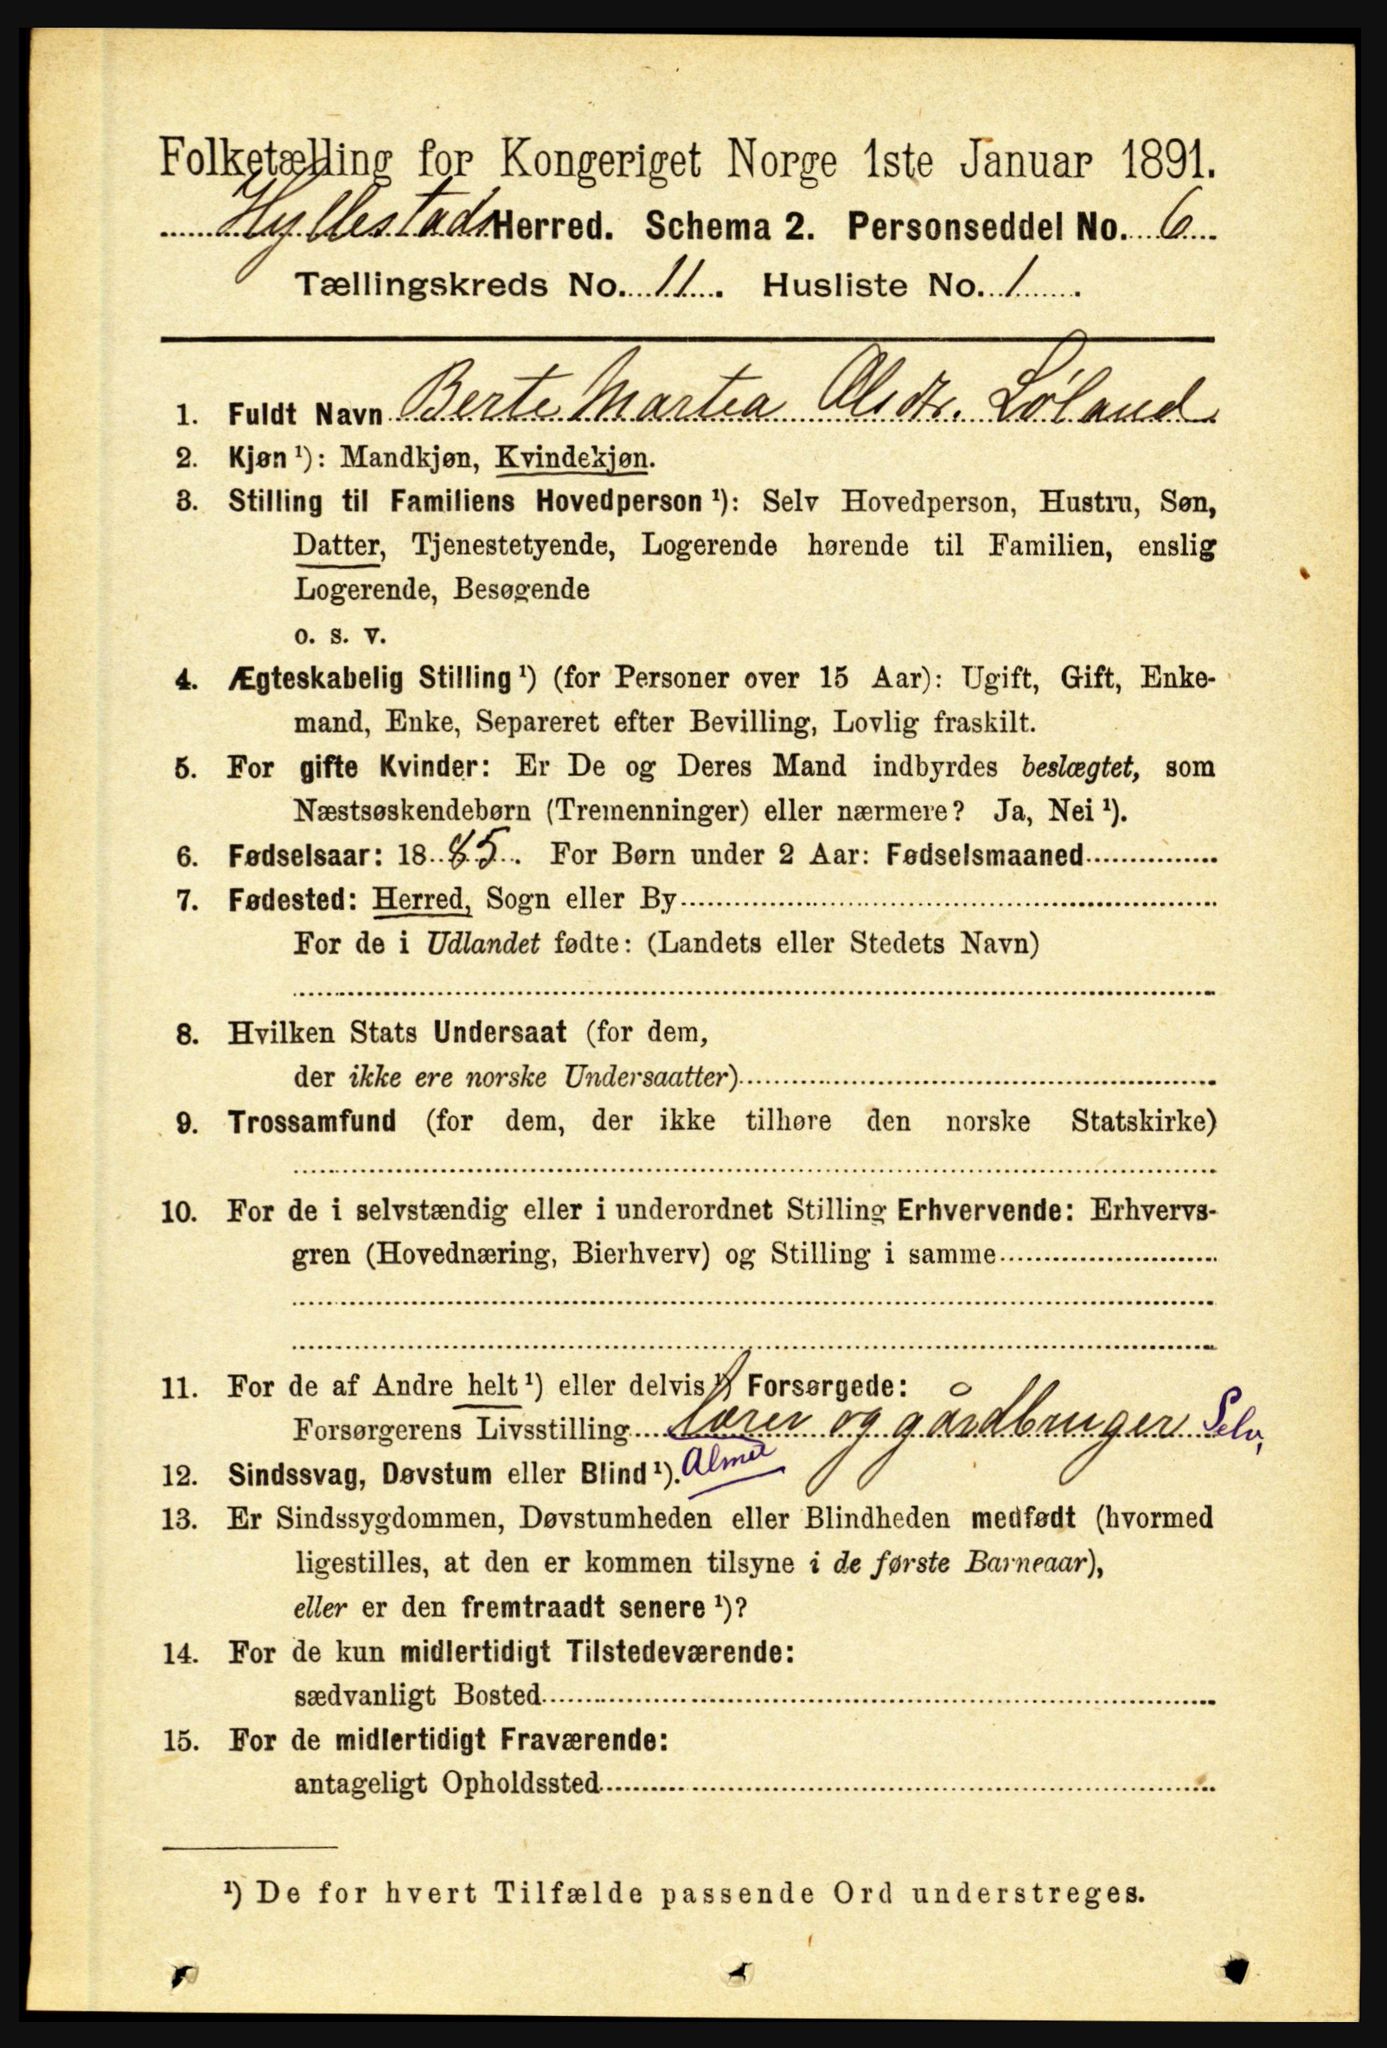 Folketælling for Kongeriget Norge 1ste Januar 1891.
Hyllestads Herred. Schema 2. Personseddel No. 6
Tællingskreds No. 11. Husliste No. 1.
1. Fuldt Navn Berte Martea Olsdtr. Løland
2. Kjøn ¹): Mandkjøn, Kvindekjøn.
3. Stilling til Familiens Hovedperson ¹): Selv Hovedperson, Hustru, Søn,
Datter, Tjenestetyende, Logerende hørende til Familien, enslig
Logerende, Besøgende
o. s. v.
4. Ægteskabelig Stilling ¹) (for Personer over 15 Aar): Ugift, Gift, Enke-
mand, Enke, Separeret efter Bevilling, Lovlig fraskilt.
5. For gifte Kvinder: Er De og Deres Mand indbyrdes beslægtet, som
Næstsøskendebørn (Tremenninger) eller nærmere? Ja, Nei ¹).
6. Fødselsaar: 1885. For Børn under 2 Aar: Fødselsmaaned
7. Fødested: Herred, Sogn eller By
For de i Udlandet fødte: (Landets eller Stedets Navn)
8. Hvilken Stats Undersaat (for dem,
der ikke ere norske Undersaatter)
9. Trossamfund (for dem, der ikke tilhøre den norske Statskirke)
10. For de i selvstændig eller i underordnet Stilling Erhvervende: Erhvervs-
gren (Hovednæring, Bierhverv) og Stilling i samme
11. For de af Andre helt ¹) eller delvis ¹) Forsørgede:
Forsørgerens Livsstilling lærer og gårdbruger Selv,
12. Sindssvag, Døvstum eller Blind ¹). Almu
13. Er Sindssygdommen, Døvstumheden eller Blindheden medfødt (hvormed
ligestilles, at den er kommen tilsyne i de første Barneaar),
eller er den fremtraadt senere ¹)?
14. For de kun midlertidigt Tilstedeværende:
sædvanligt Bosted
15. For de midlertidigt Fraværende:
antageligt Opholdssted
¹) De for hvert Tilfælde passende Ord understreges.